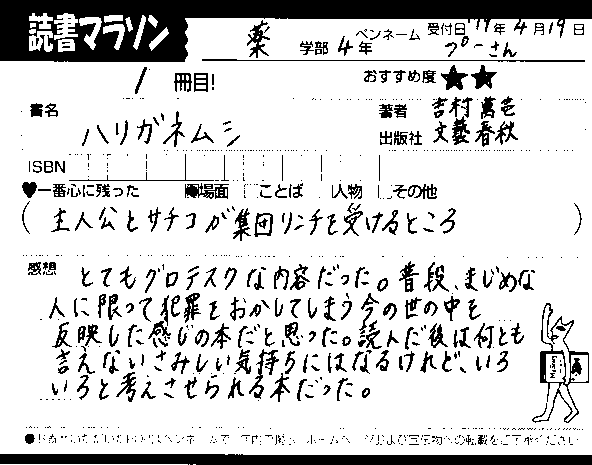 読書マラソン
薬 学部 4年 ペンネーム プーさん 受付日 '11年4月19日
1 冊目! おすすめ度 ★★
書名 ハリガネムシ
著者 吉村萬壱
出版社 文藝春秋
ISBN
♥一番心に残った 場面 ことば 人物 その他
(主人公とサチコが集団リンチを受けるところ)
感想 とてもグロテスクな内容だった。普段、まじめな
人に限って犯罪をおかしてしまう今の世の中を
反映した感じの本だと思った。読んだ後は何とも
言えないさみしい気持ちにはなるけれど、いろ
いろと考えさせられる本だった。